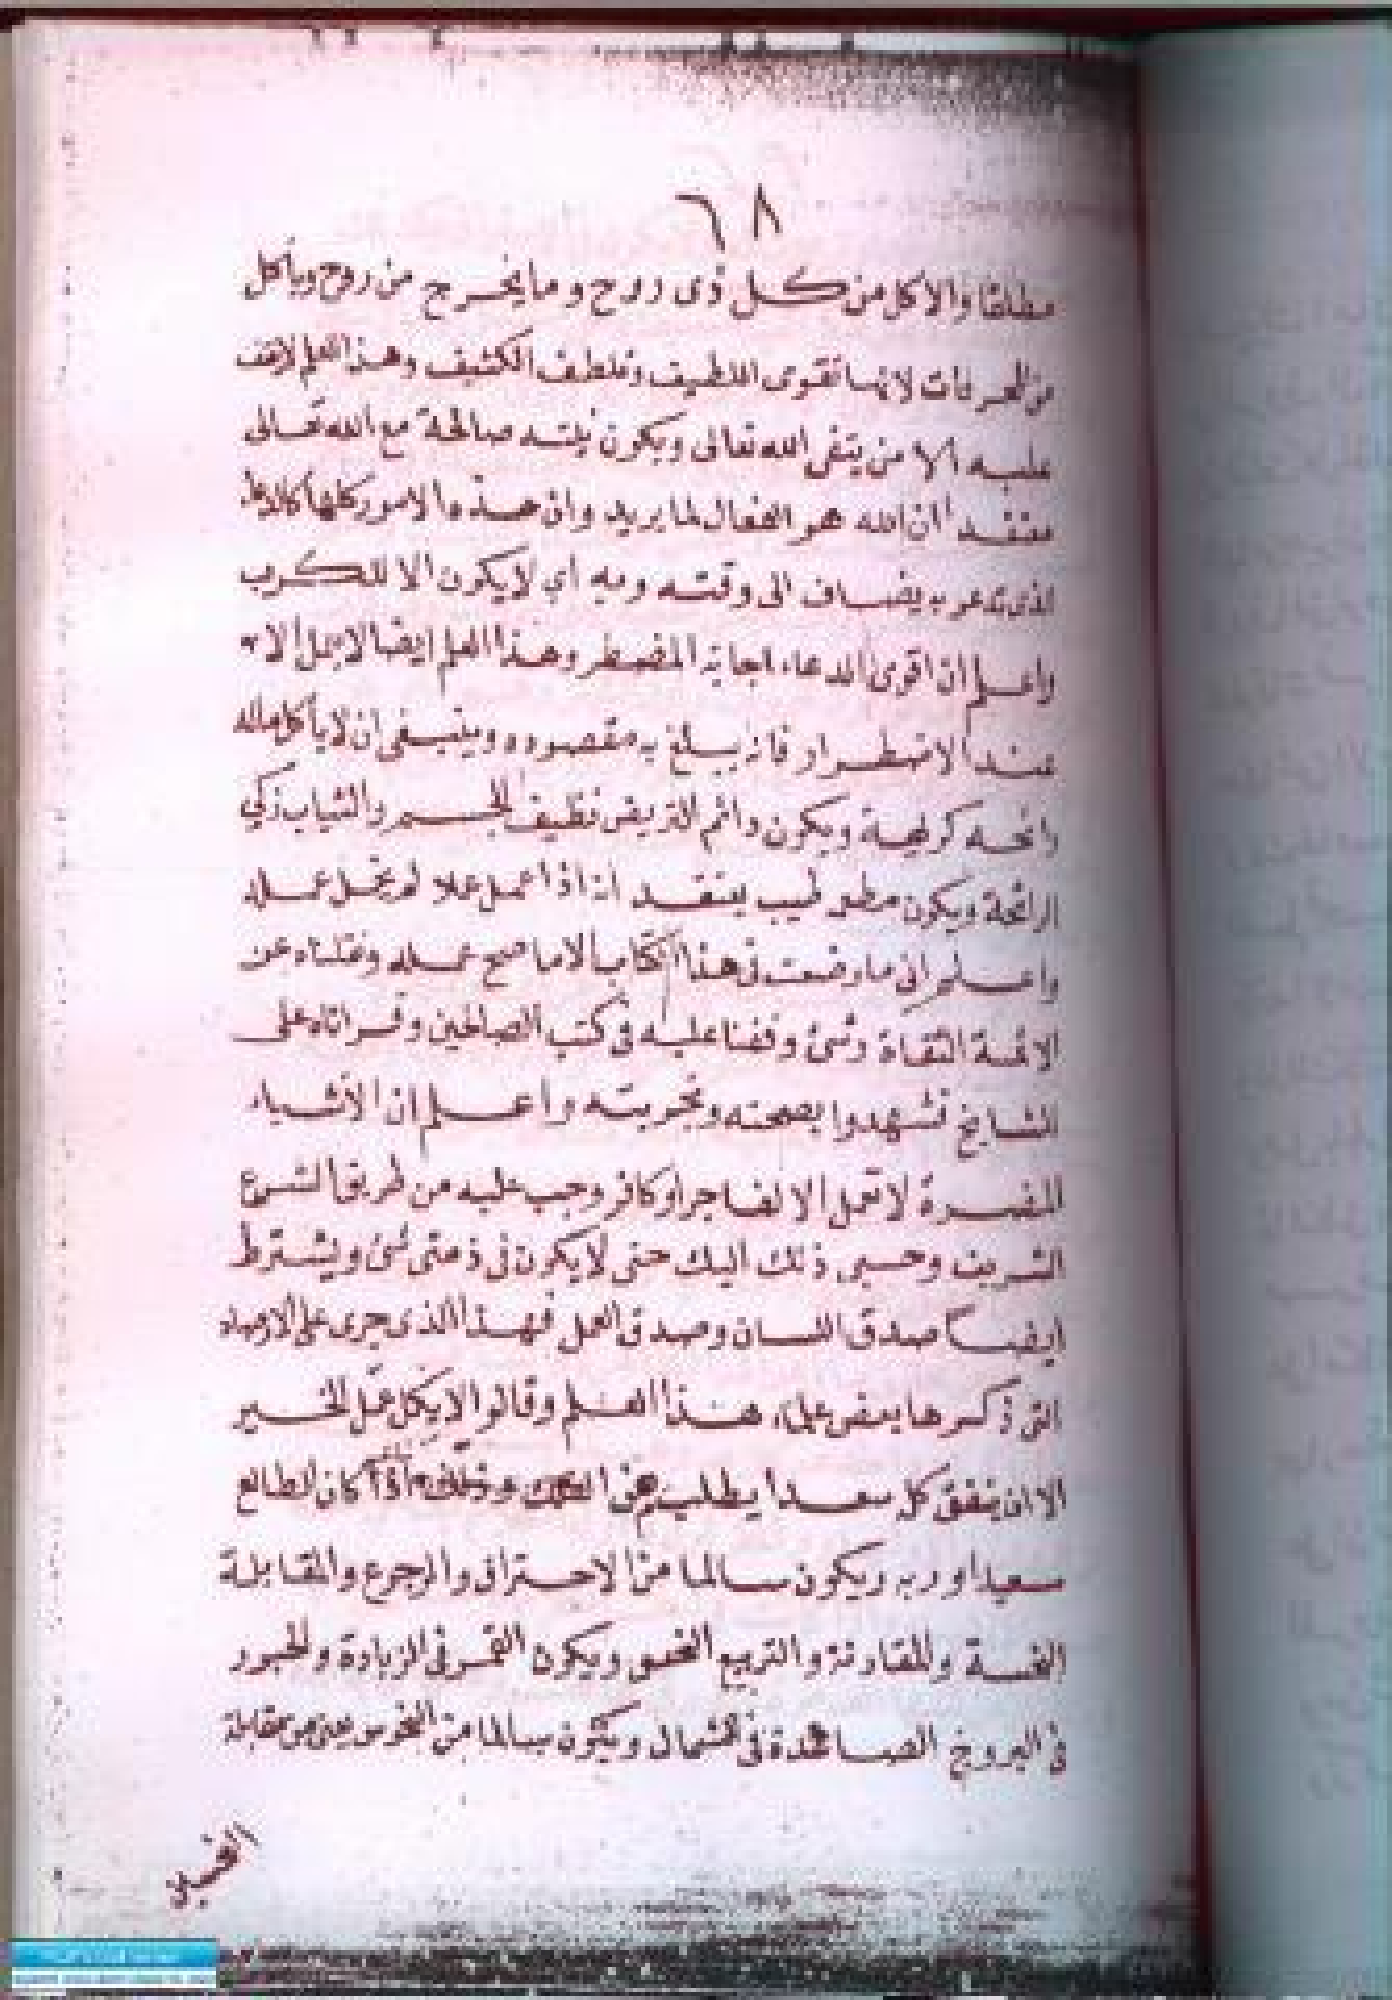 ٦٨
مطلقا والاكل من كل ذى روح وما يخرج من روح وياكل
من المحرقات لانها تقوى اللطيف وتلطف الكثيف وهذا العلم لايقف
عليه الا من يتقى الله تعالى ويكون نيته صالحة مع الله تعالى
معتقدا ان الله هو الفعال لما يريد وان هذه الامور كلها
الذى تدعو به يضاف الى وقته وفيه أي لايكون الا للكرب
واعلم ان اقوى الدعاء اجابة المضطر وهذا العلم ايضا لايعمل الا
عند الاضطرار فانه يبلغ به مقصوده وينبغى ان لا ياكل ماله
رائحه كريهة ويكون دائم التريض نظيف الجسم والثياب زكي
الرائحة ويكون مطعمه طيب يعتقد انه اذا عمل عملا لم يخل عمله
واعلم انى ما وضعت فى هذا الكتاب الا ما صح عمله ونقلناه عن
الائمة الثقاة وشئ وقفنا عليه فى كتب الصالحين وقراناه على
المشايخ فشهدوا بصحته وتجربته واعلم ان الأشياء
المضرة لا تعمل الا لفاجر او كافر وجب عليه من طريق الشرع
الشريف وحسبى ذلك اليك حتى لا يكون فى ذمتى شئ ويشترط
ايضا صدق اللسان وصدق العمل فهذا الذى جرى على
التى ذكرها بعض علماء هذا العلم وقالوا لا يكل عمل الخير
الا ان يتفق كل سعد يطلب من الفلك اذا كان الطالع
سعيدا وربه ويكون سالما من الاحتراق والرجوع والمقابلة
النحسة والمقارنة والتربيع النحس ويكون القمر فى الزيادة والحبور
فى البروج الصاعدة فى الشمال ويكون سالما من النحوس يعنى من مقابلة